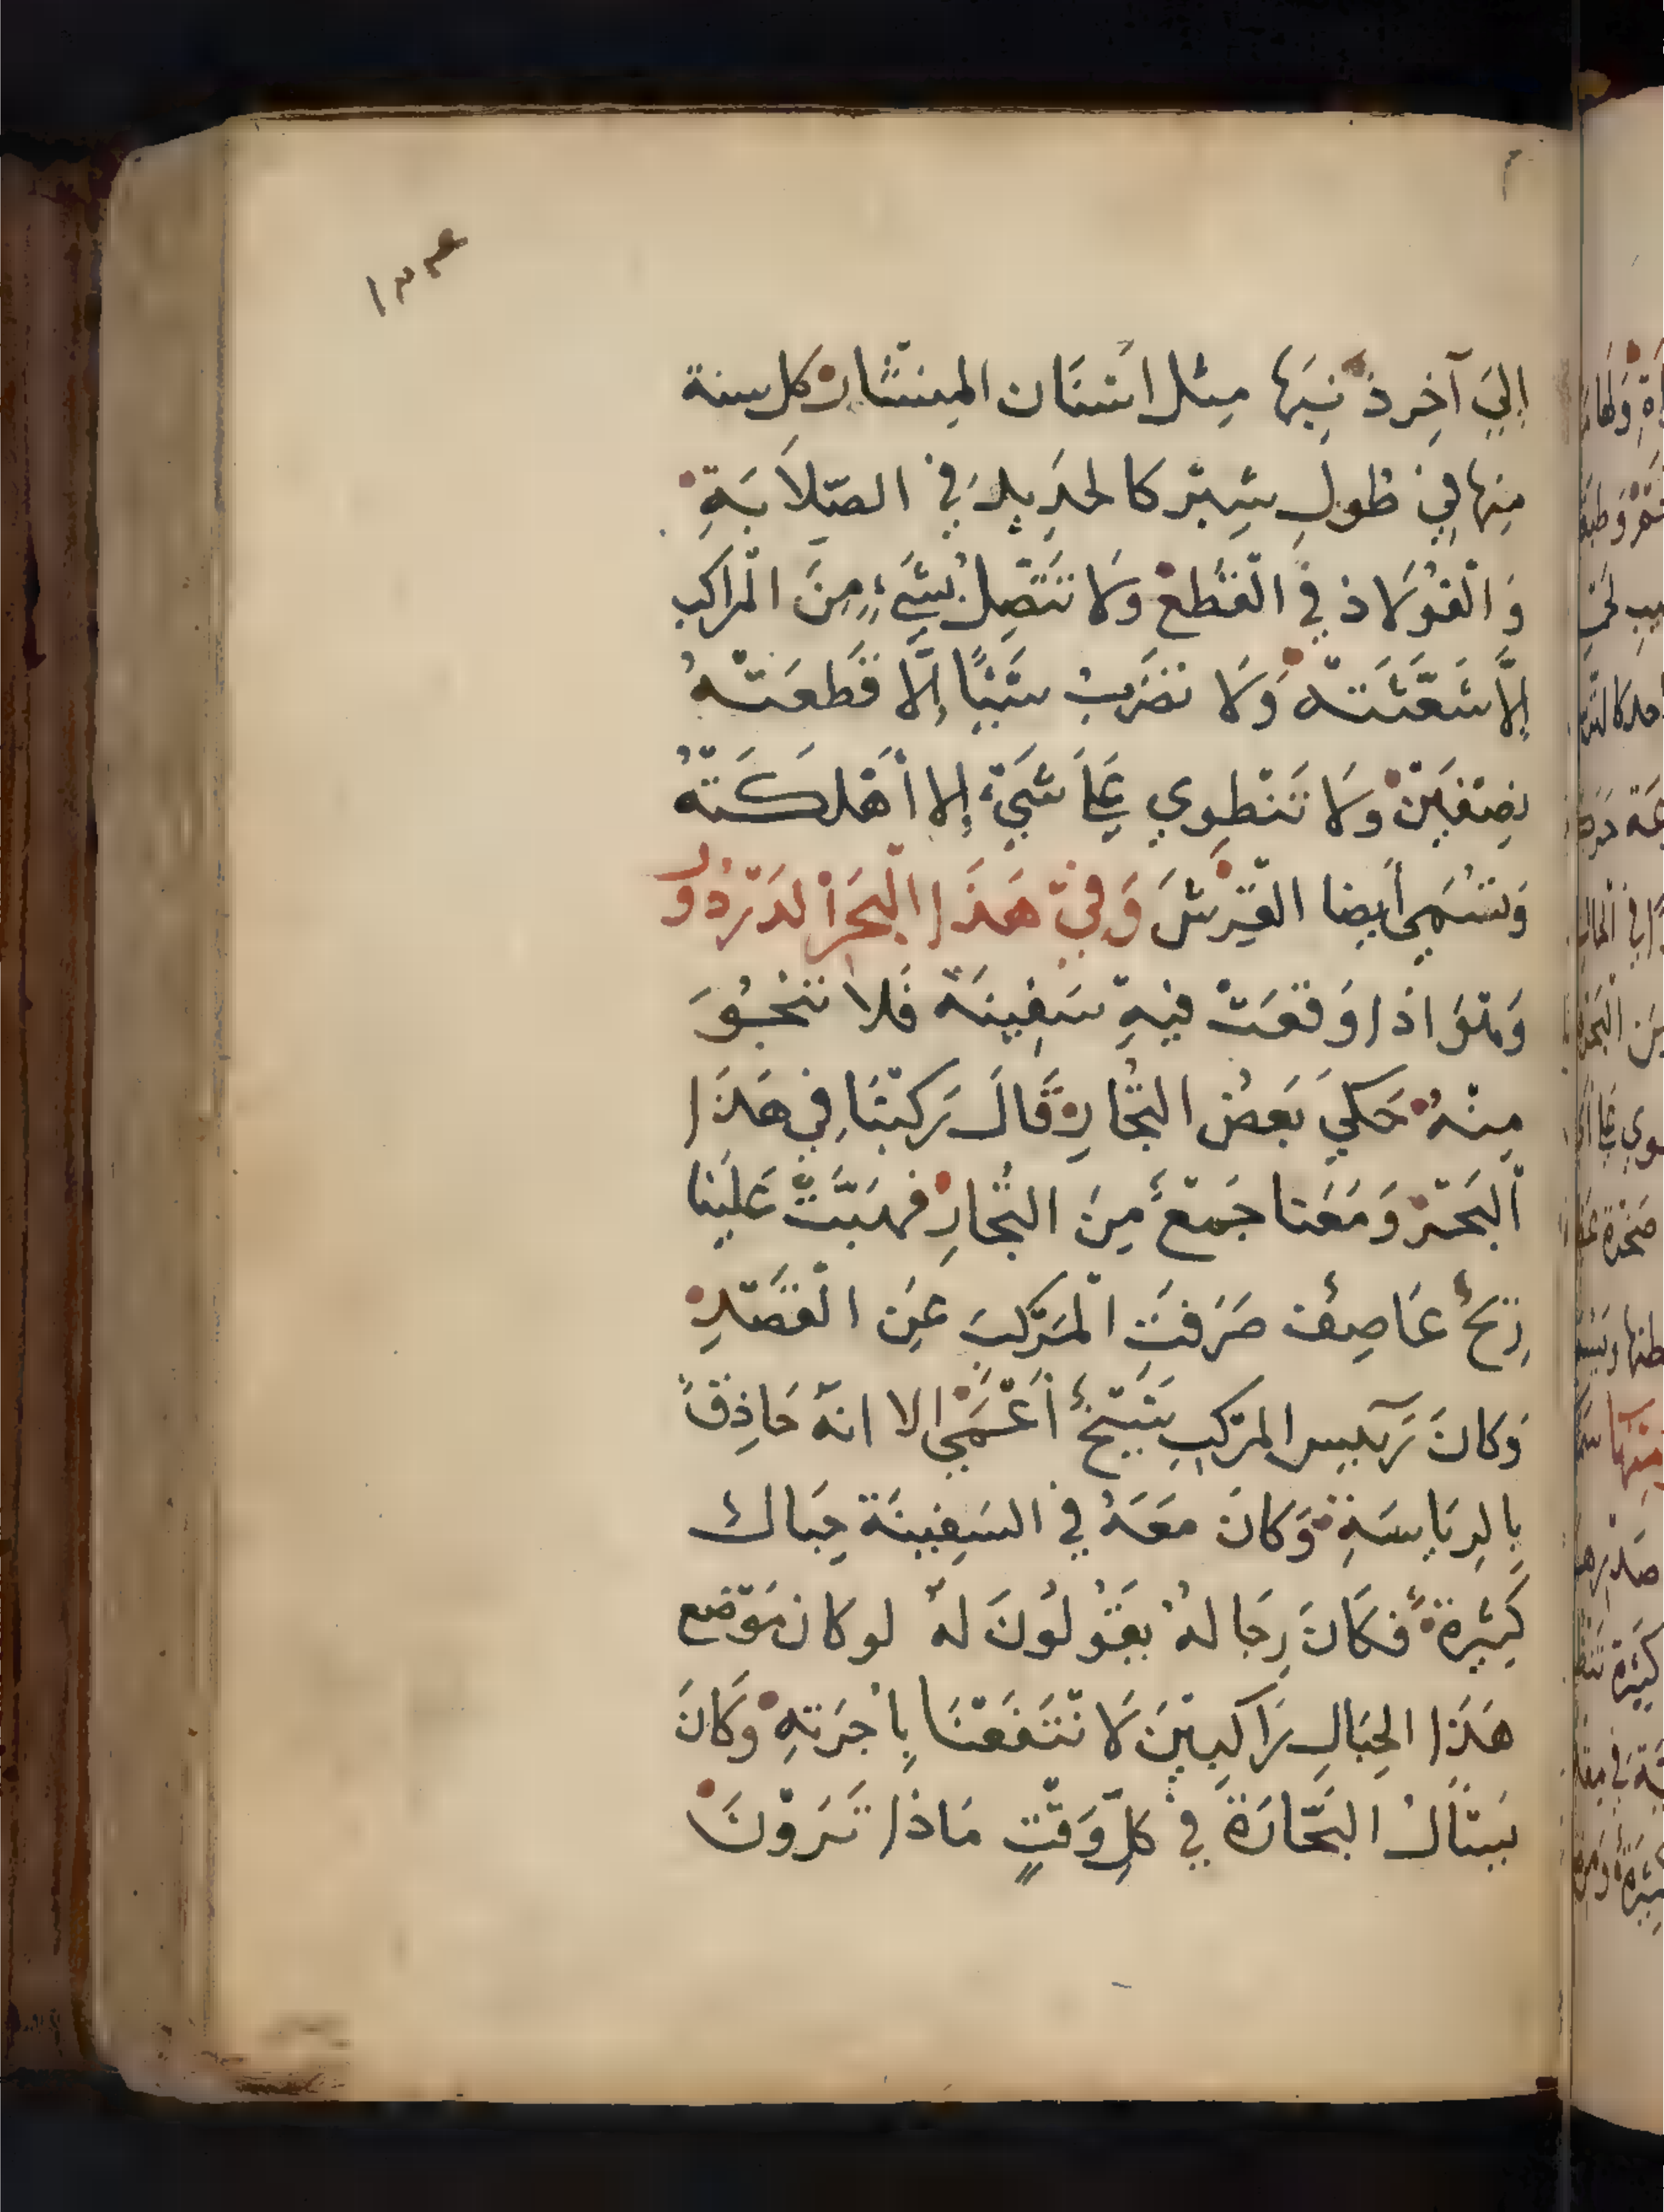 ١٣٤
إِلَي آخِرِ ذَنَبِهَا مِثل اَسْنَان المِنْشَار كل سنة
مِنها فِي طُولِ شِبْر كالحَدِيدِ فِي الصَّلاَبَةِ
وَالْفُولَاذ فِي الْقَطْع وَلَا تَتَّصِلُ بِشَيءٍ مِنَ الْمَراكب
إِلاَّ شَعَّثَتْهُ وَلَا تضَرِبُ شَيْئًا إِلَّا قَطعَتْهُ
نِصْفَيْن وَلَا تَنْطوِي عَلَي شَيْءٍ إِلا أَهْلَكَتْهُ
وَتُسَمي أَيضا القِرْش وَفِي هَذَا الْبَحَر الدَرْدُور
وَهُوَ اذا وَقعَتْ فِيهِ سَفِينَة فَلا تنْجُوَ
مِنْهُ حَكي بَعضُ التُجَّارِ قَالَ رَكِبْنَا فِي هَذَا
اَلبَحْر وَمَعَنا جَمْعٌ مِنَ التُجَّارِ فهَبَّتْ عَلَيْنا
رِيْحٌ عَاصِفٌ صَرَفتِ الْمَرْكبَ عَنِ الْقَصْدِ
وَكانَ رَئيس المَرْكبِ شَيْخٌ أَعْمَي الا انهُ حَاذِقٌ
بِالرِيَاسَةِ وَكانَ مَعَهُ فِي السَفِينَة حِبَال
كَثِيرَة فَكَانَ رِجَالهُ يَقُولُونَ لهُ لو كان مَوْضع
هَذَا الحِبَالِ رَاكِبِيْنَ لَانْتَفَعْنَا بِاُجرَتهِ وَكَانَ
يَسْأَلُ البَحَّارَةَ فِي كلِّ وَقْتٍ مَاذَا تَرَوْنَ